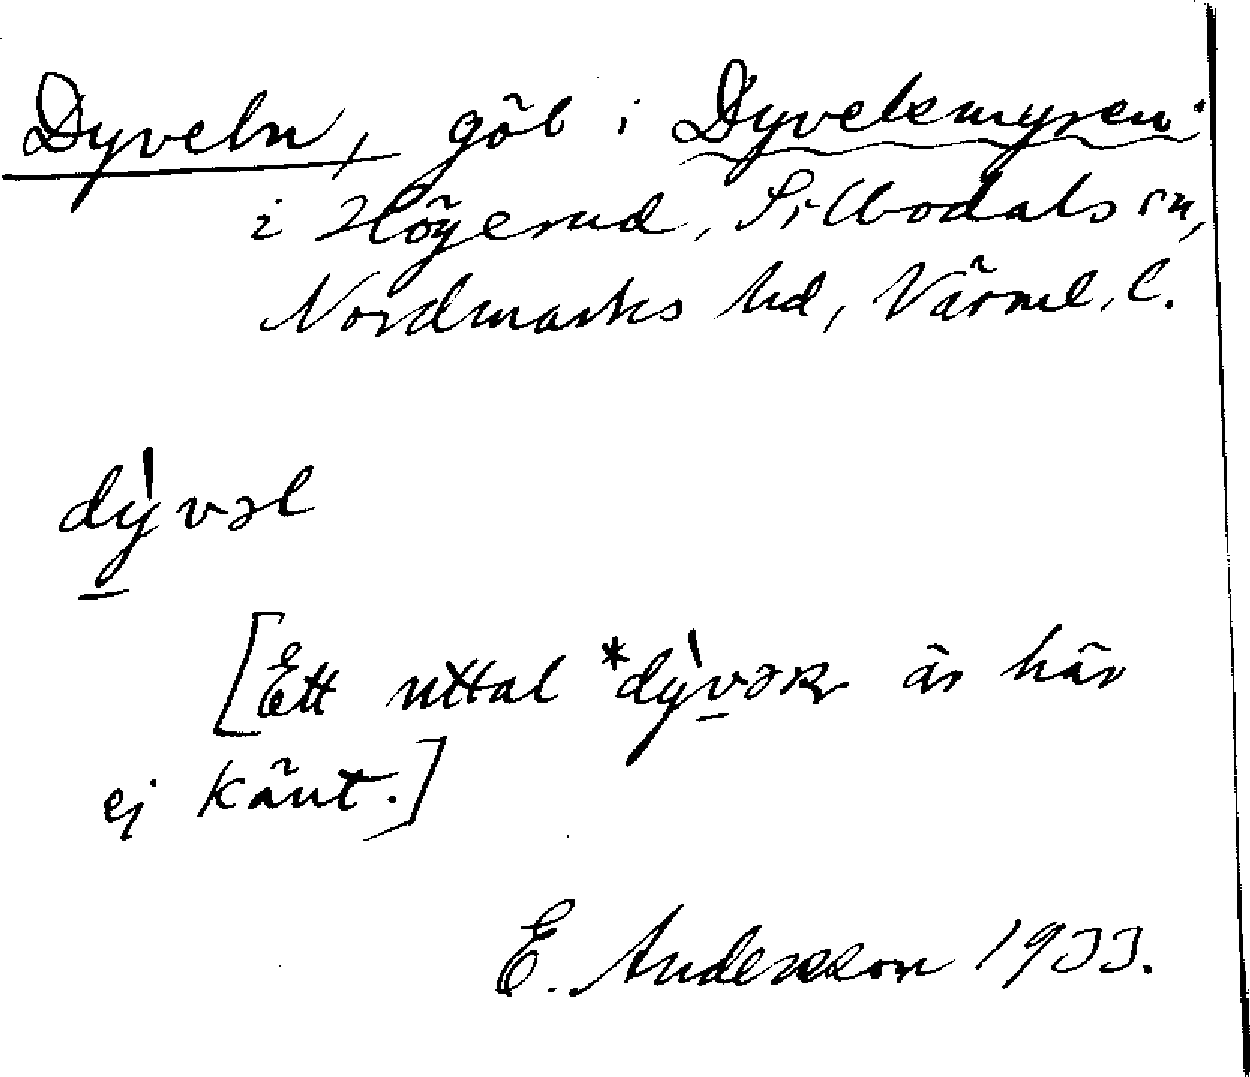 Dyveln, göl i Dyvelsmyren
i Högerud, Sillbodals sn,
Nordmarks hd, Värml. l.
dỳvəl
[Ett uttal *dỳvəʀ är här
ej känt.]
E. Andersson 1933.